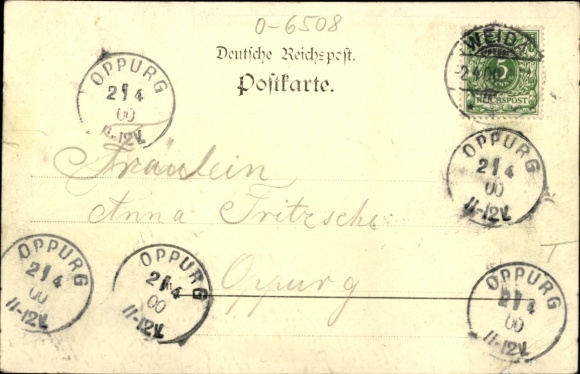 0-6508
Deutsche Reichspost.
Postkarte.
WEIDA
5
REICHSPOST
OPPURG
2 4
00
11-12V.
Fräulein
Anna Fritzsche
Oppurg
OPPURG
2 4
00
11-12V.
OPPURG
2 4
00
11-12V.
OPPURG
2 4
00
11-12V.
OPPURG
2 4
00
11-12V.